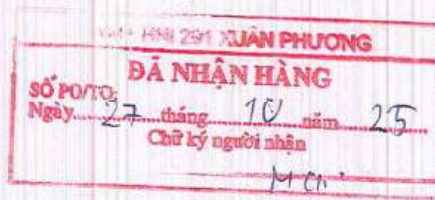 HNI 291 XUÂN PHƯƠNG
ĐÃ NHẬN HÀNG
SỐ PO/TO:
Ngày 27 tháng 10 năm 25
Chữ ký người nhận